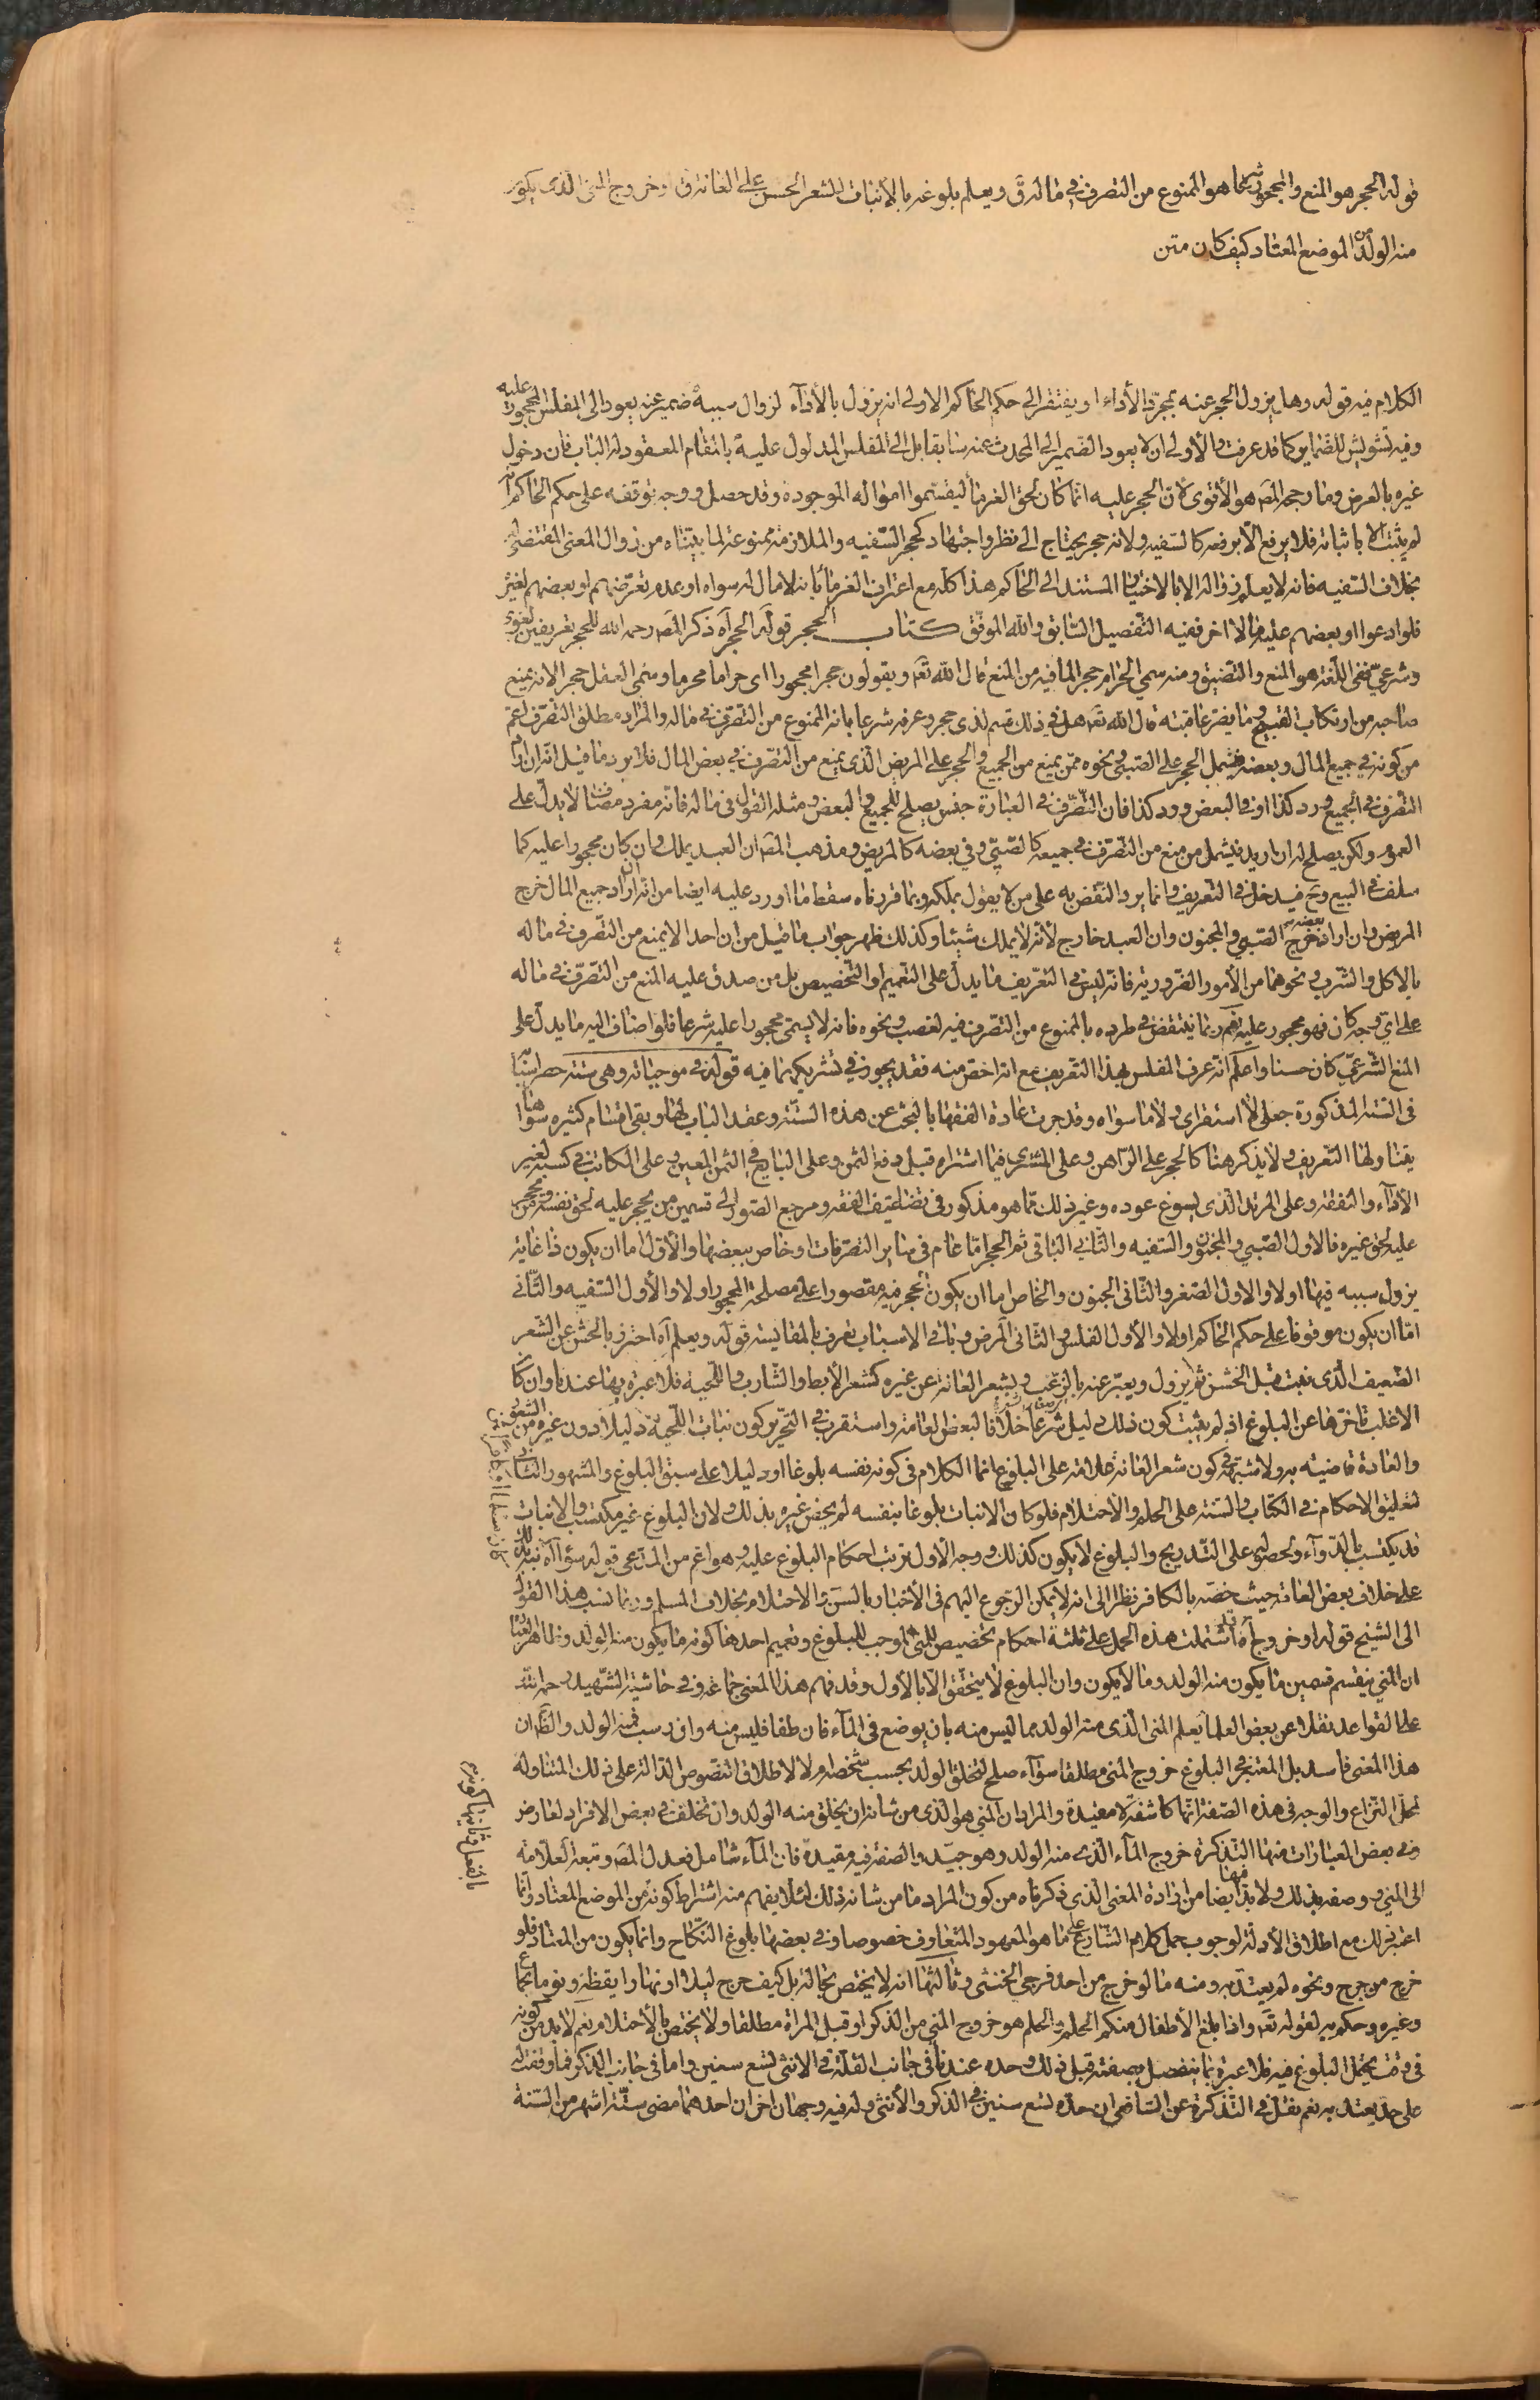 قوله الحجر هو المنع والمحجور شرعا هو الممنوع من التصرف في ماله ق ويعلم بلوغه بالانبات للشعر الخشن على العانة ق او خروج المني الذي يكون
منه الولد من الموضع المعتاد كيف كان متن
الكلام فيه قوله وهل يزول الحجر عنه بمجرد الأداء او يفتقر الى حكم الحاكم الاولى انه يزول بالأداء لزوال سببه ضمير عنه يعود الى المفلس المحجور عليه
وفيه تشويش للضماير كما قد عرفت والأولى ان لا يعود الضمير الى المحدث عنه سابقا بل الى المفلس المدلول عليه بالمقام المعقود له الباب فان دخول
غيره بالعرض وما رجحه المصـ هو الأقوى لان الحجر عليه انما كان لحق الغرماء ليقسموا امواله الموجودة وقد حصل ووجه توقفه على حكم الحاكم انه
لم يثبت الا باثباته فلا يرتفع الا برفعه كالسفيه ولانه حجر يحتاج الى نظر واجتهاد كحجر السفيه والملازمة ممنوعة لما بيناه من زوال المعنى المقتضي له
بخلاف السفيه فانه لا يعلم زواله الا بالاختبار المستند الى الحاكم هذا كله مع اعتراف الغرماء بانه لا مال له سواه او عدم تعرضهم او بعضهم لغيره
فلو ادعوا او بعضهم عليه مالا اخر ففيه التفصيل السابق والله الموفق كتاب الحجر قوله الحجر آه ذكر المصـ رحمه الله للحجر تعريفين لغوي
وشرعي ففي اللغة هو المنع والتضييق ومنه سمي الحرام حجرا لما فيه من المنع قال الله تعـ ويقولون حجرا محجورا اى حراما محرما وسمي العقل حجرا لانه يمنع
صاحبه من ارتكاب القبيح وما يضر عاقبته قال الله تعـ هل في ذلك قسم لذى حجر وعرفه شرعا بانه الممنوع من التصرف في ماله والمراد مطلق التصرف اعم
من كونه في جميع المال وبعضه فيشمل الحجر على الصبي ونحوه ممن يمنع من الجميع والحجر على المريض الذى يمنع من التصرف في بعض المال فلا يرد ما قيل انه ان اراد
التصرف في الجميع ورد كذا او في البعض ورد كذا فان التصرف في العبارة جنس يصلح للجميع والبعض ومثله القول في ماله فانه مفرد مضاف لا يدل على
العموم ولكن يصلح له ان اريد فيشمل من منع من التصرف في جميعه كالصبي وفي بعضه كالمريض ومذهب المصـ ان العبد يملك وان كان محجورا عليه كما
سلف في البيع وح فيدخل في التعريف وانما يرد النقض به على من لا يقول بملكه وبما قررناه سقط ما اورد عليه ايضا من انه ان اراد جميع المال خرج
المريض وان اراد بعضه خرج الصبي والمجنون وان العبد خارج لأنه لا يملك شيئا وكذلك ظهر جواب ما قيل من ان احدا لا يمنع من التصرف في ماله
بالاكل والشرب ونحوهما من الأمور الضرورية فانه ليس في التعريف ما يدل على التعميم او التخصيص بل من صدق عليه المنع من التصرف في ماله
على اى وجه كان فهو محجور عليه نعم ربما ينتقض في طرده بالممنوع من التصرف فيه لغصب ونحوه فانه لا يسمى محجورا عليه شرعا فلو اضاف اليه ما يدل على
المنع الشرعي كان حسنا واعلم انه عرف المفلس بهذا التعريف مع انه اخص منه فقد يجوز في تشريكهما فيه قوله في موجباته وهي ستة حصر اسبابه
في الستة المذكورة جعلي لا استقرائي ولا ما سواه وقد جرت عادة الفقهاء بالبحث عن هذه الستة وعقد الباب لها وبقي اقسام كثيرة سواها
يتناولها التعريف ولا يذكر هنا كالحجر على الراهن وعلى المشتري فيما اشتراه قبل دفع الثمن وعلى البايع في الثمن المعين وعلى المكاتب في كسبه لغير
الأداء والنفقة وعلى المرتد الذى يسوغ عوده وغير ذلك مما هو مذكور في تضاعيف الفقه ومرجع الصور الى قسمين من يحجر عليه لحق نفسه ومن يحجر
عليه لحق غيره فالاول الصبي والمجنون والسفيه والثاني الباقي ثم الحجر اما عام في ساير التصرفات او خاص ببعضها والأول اما ان يكون ذا غاية
يزول سببه فيها اولا والاول الصغر والثاني الجنون والخاص اما ان يكون الحجر فيه مقصورا على مصلحة المحجور اولا والأول السفيه والثاني
اما ان يكون موقوفا على حكم الحاكم اولا والأول الفلس والثاني المرض وباقي الاسباب تعرف بالمقايسة قوله ويعلم آه احترز بالخشن عن الشعر
الضعيف الذى نبت قبل الخشن ثم يزول ويعبر عنه بالزغب وبشعر العانة عن غيره كشعر الأبط والشارب واللحية فلا عبرة بها عندنا وان كان
الاغلب تأخرها عن البلوغ اذ لم يثبت كون ذلك دليل شرعا خلافا لبعض العامة واستقرب في التحرير كون نبات اللحية دليلا دون غيره من الشعور
والعادة قاضية به ولا شبهة في كون شعر العانة علامة على البلوغ انما الكلام في كونه نفسه بلوغا او دليلا على سبق البلوغ والمشهور الثاني
لتعليق الاحكام في الكتاب والسنة على الحلم والاحتلام فلو كان الانبات بلوغا بنفسه لم يخص غيره بذلك ولان البلوغ غير مكتسب والانبات
قد يكتسب بالدواء ولحصوله على التدريج والبلوغ لا يكون كذلك ووجه الأول ترتب احكام البلوغ عليه وهو اعم من المدعى قوله سواء آه نبه بذلك
على خلاف بعض العامة حيث خصه بالكافر نظرا الى انه لا يمكن الرجوع اليهم في الأخبار بالسن والاحتلام بخلاف المسلم وربما نسب هذا القول
الى الشيخ قوله او خروج آه اشتملت هذه الجمل على ثلثة احكام تخصيص المني الموجب للبلوغ وتعميم احدها كونه ما يكون منه الولد وظاهر العبارة
ان المني ينقسم قسمين ما يكون منه الولد وما لا يكون وان البلوغ لا يتحقق الا بالأول وقد فهم هذا المعنى جماعة وفي حاشية الشهيد رحمه الله
على القواعد نقلا عن بعض العلماء يعلم المني الذى منه الولد مما ليس منه بان يوضع في الماء فان طفا فليس منه وان رسب فمنه الولد والظ ان
هذا المعنى فاسد بل المعتبر في البلوغ خروج المني مطلقا سواء صلح لتخلق الولد بحسب شخصه ام لا لاطلاق النصوص الدالة على ذلك المتناولة
لمحل النزاع والوجه في هذه الصفة انها كاشفة لا مقيدة والمراد ان المني هو الذى من شانه ان يخلق منه الولد وان تخلف في بعض الافراد لعارض
وفي بعض العبارات منها التذكرة خروج الماء الذى منه الولد وهو جيد والصفة فيه مقيدة فان الماء شامل فعدل المصـ وتبعه العلامة
الى المني ووصفه بذلك ولا بد فيها ايضا من ارادة المعنى الذى ذكرناه من كون المراد ما من شانه ذلك لئلا يفهم منه اشتراط كونه من الموضع المعتاد وانما
اعتبر ذلك مع اطلاق الأدلة لوجوب حمل كلام الشارع على ما هو المعهود المتعارف خصوصا وفي بعضها بلوغ النكاح وانما يكون من المعتاد فلو
خرج من جرح ونحوه لم يعتد به ومنه ما لو خرج من احد فرجي الخنثى وثالثها انه لا يختص بحالة بل كيف خرج ليلا او نهارا يقظة ونوما بجماع
وغيره وحكم به لقوله تعـ واذا بلغ الأطفال منكم الحلم والحلم هو خروج المني من الذكر او قبل المرأة مطلقا ولا يختص بالاحتلام نعم لا بد من كونه
في وقت يحتمل البلوغ فيه فلا عبرة بما ينفصل بصفته قبل ذلك وحده عندنا في جانب القلة في الانثى تسع سنين واما في جانب الذكر فما وقفت له
على حد يعتد به نعم نقل في التذكرة عن الشافعي ان حده تسع سنين في الذكر والأنثى وله فيه وجهان اخران احدهما مضي ستة اشهر من السنة